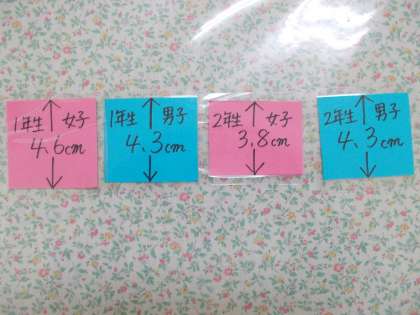 1年生 女子
4.6cm
1年生 男子
4.3cm
2年生 女子
3.8cm
2年生 男子
4.3cm